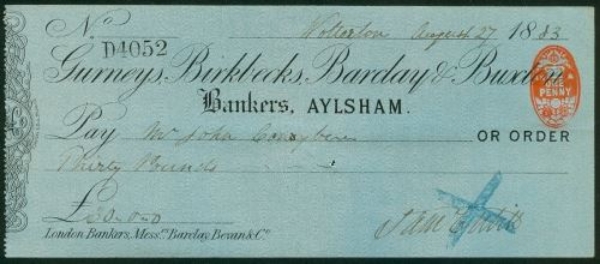 No
D4052
Wolterton August 27 1883
Gurneys, Birkbecks, Barclay & Buxton
ONE PENNY
Bankers, AYLSHAM.
Pay Mr John OR ORDER
Thirty Pounds
£30-0-0
London Bankers, Messrs. Barclay, Bevan & Co.